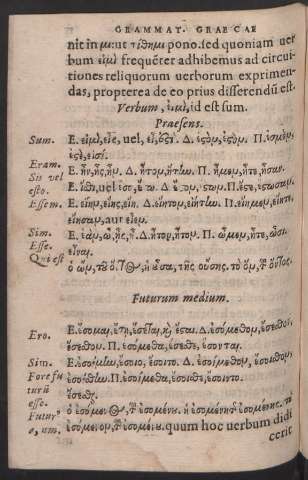 GRAMMAT. GRAECAE
nit in μι: ut τίθημι pono. sed quoniam uer
bum εἰμὶ frequẽter adhibemus ad circui-
tiones reliquorum uerborum exprimen-
das, propterea de eo prius differendũ est.
Verbum, εἰμὶ, id est sum.
Praesens.
Sum. E. εἰμὶ, εἶς, uel, εἶ, ἐστί. Δ. ἐσὸν, ἐσὸν. Π. ἐσμὲν,
ἐστὲ, εἰσί.
Eram. E. ἦν, ἦς, ἦ. Δ. ἦτον, ἤτην. Π. ἦμεν, ἦτε, ἦσαν.
Sis uel
esto.
Essem. E. εἴην, εἴης, εἴη. Δ. εἴητον, εἰήτην. Π. εἴημεν, εἴητε,
εἴησαν, aut εἶεν.
Sim. E. ἐὰν, ὦ, ᾖς, ᾖ. Δ. ἦτον, ἦτον. Π. ὦμεν, ἦτε, ὦσι.
Esse. εἶναι.
Qui est ὁ ὢν, τοῦ ὄντος, ἡ οὖσα, τῆς οὔσης. τὸ ὂν, τοῦ ὄντος.
Futurum medium.
Ero. E. ἔσομαι, ἔσῃ, ἔσεται, ἔσται. Δ. ἐσόμεθον, ἔσεσθον,
ἔσεσθον. Π. ἐσόμεθα, ἔσεσθε, ἔσονται.
Sim. E. ἐσοίμην, ἔσοιο, ἔσοιτο. Δ. ἐσοίμεθον, ἔσοισθον,
Fore fu ἐσοίσθην. Π. ἐσοίμεθα, ἔσοισθε, ἔσοιντο.
turũ ἔσεσθαι.
esse.
Futur, ὁ ἐσόμενος, τοῦ ἐσομένου. ἡ ἐσομένη τῆς ἐσομένης. τὸ
a, um. ἐσόμενον, τοῦ ἐσομένου. quum hoc uerbum didi
cerit